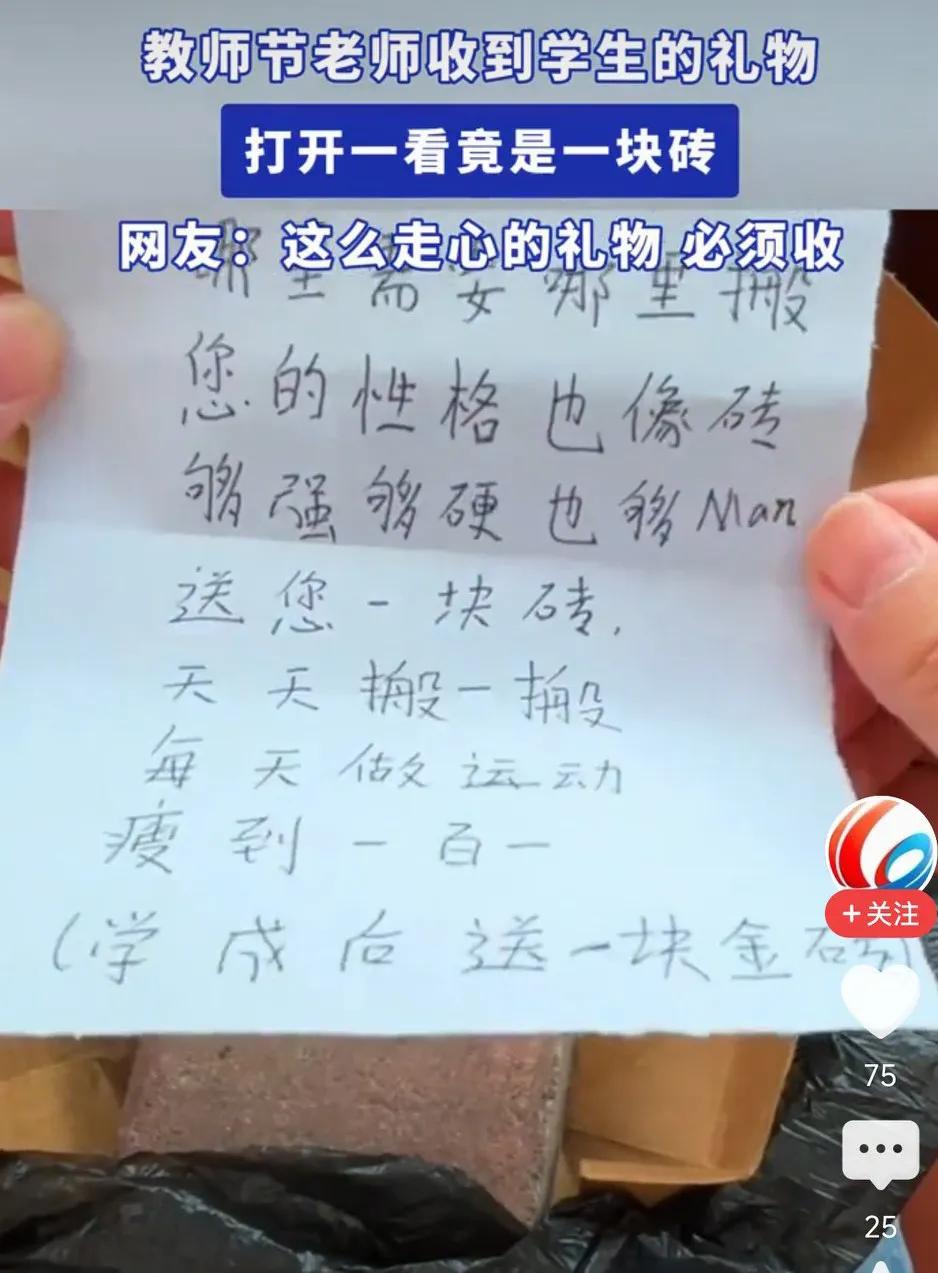 教师节老师收到学生的礼物
打开一看竟是一块砖
网友：这么走心的礼物 必须收
哪里需要哪里搬
您的性格也像砖
够强够硬也够Man
送您一块砖，
天天搬一搬
每天做运动
瘦到一百一
（学成后送一块金砖）
+关注
75
25